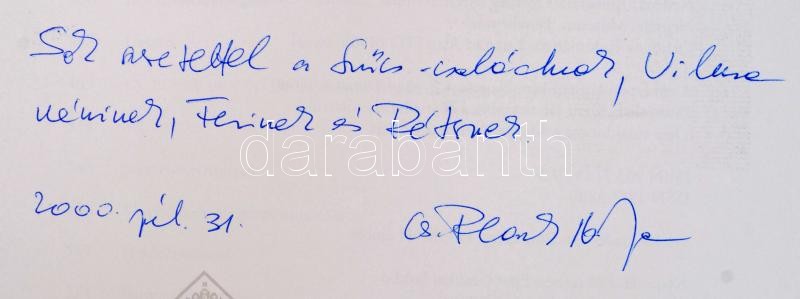 Sok szeretettel a Szűcs-családnak, Vilma
néninek, Ferinek és Péternek
darabanth
2000. júl. 31.
Cs. Plank